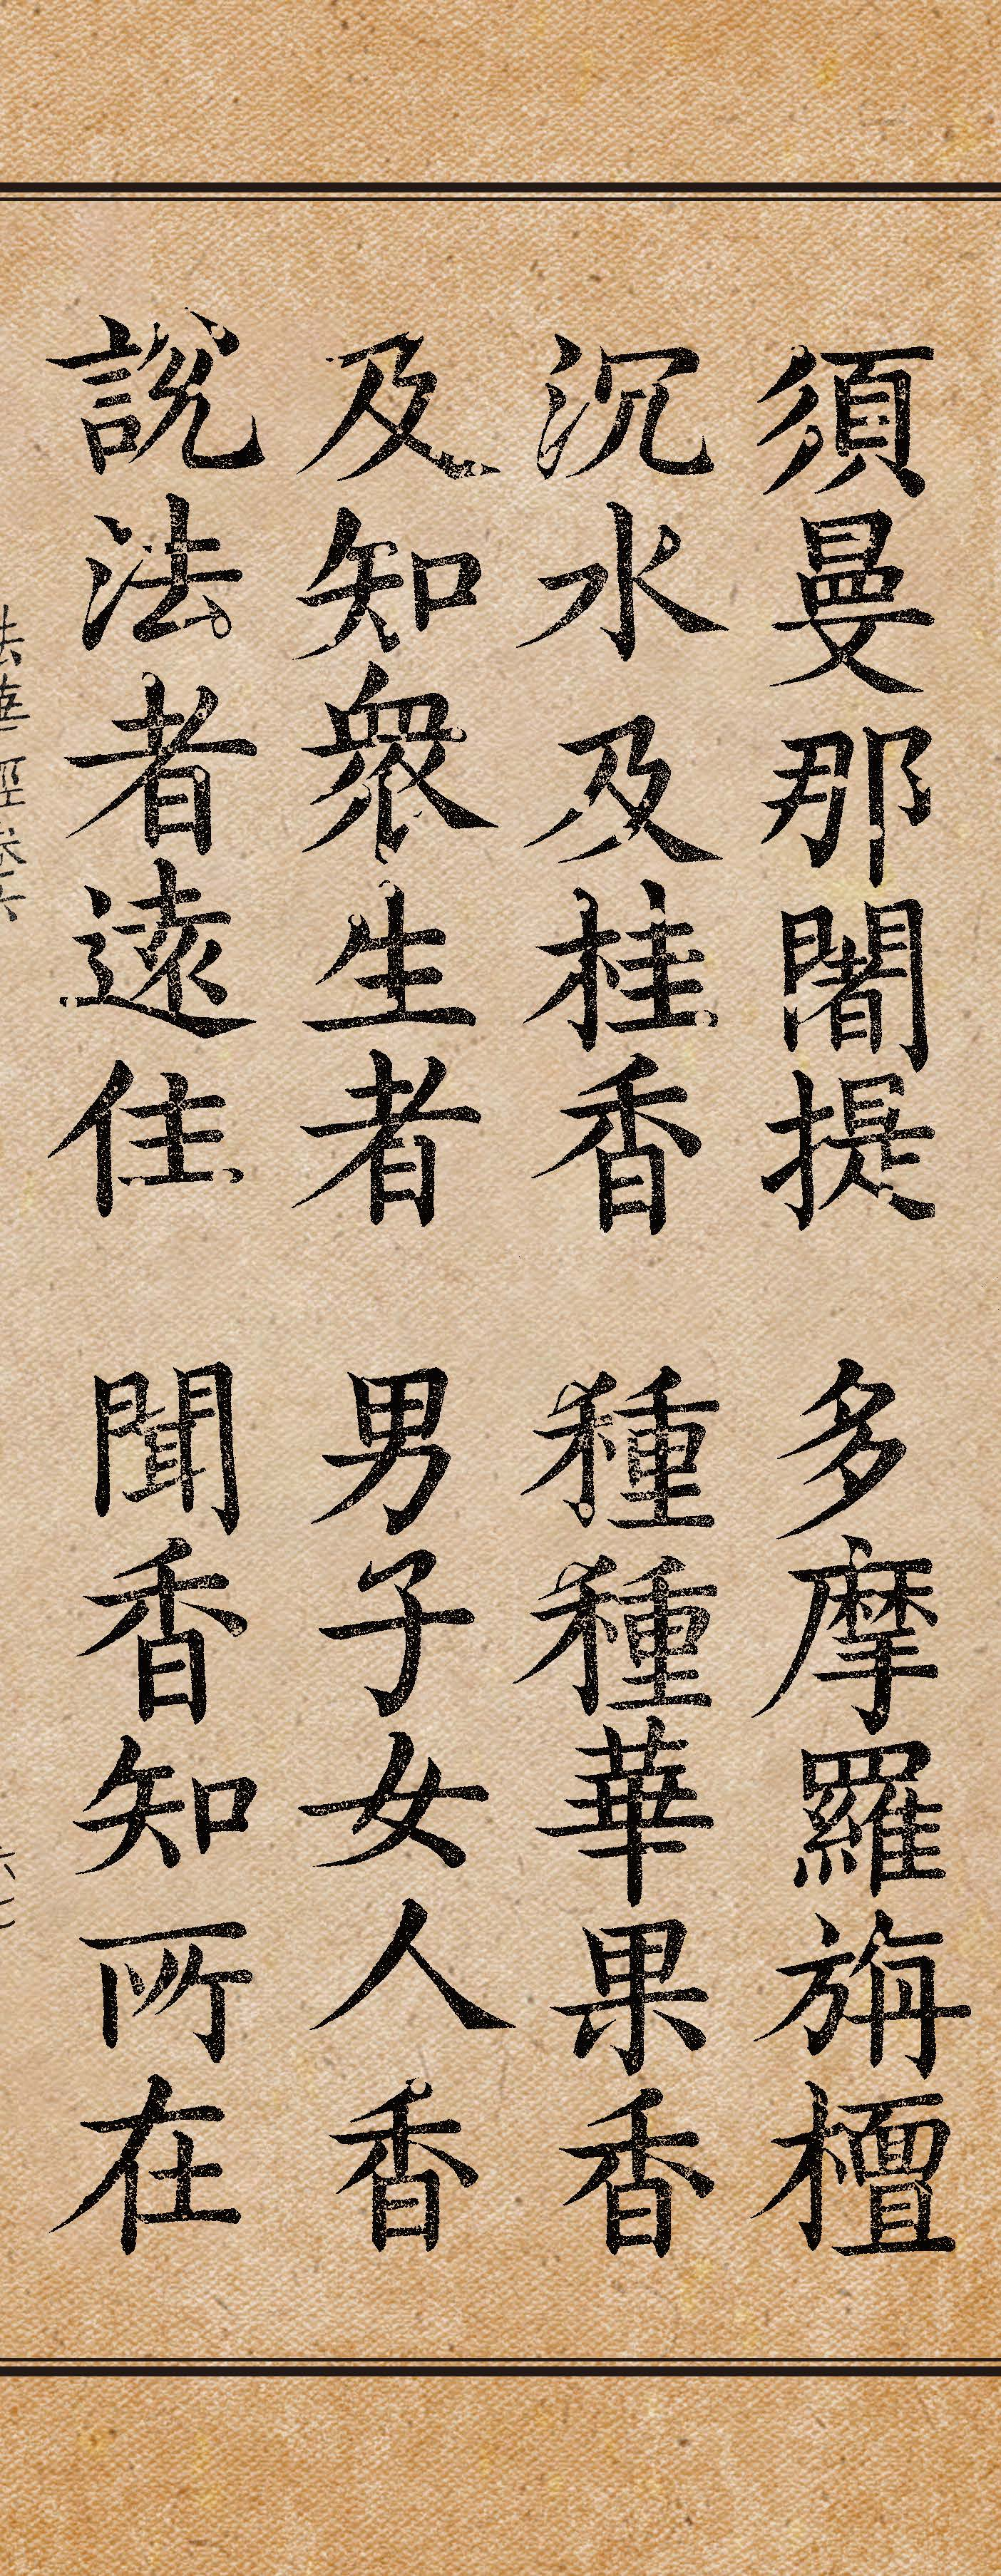 須曼那闍提 多摩羅旃檀
沉水及桂香 種種華果香
及知衆生者 男子女人香
説法者遠住 聞香知所在
法華經卷六
六七